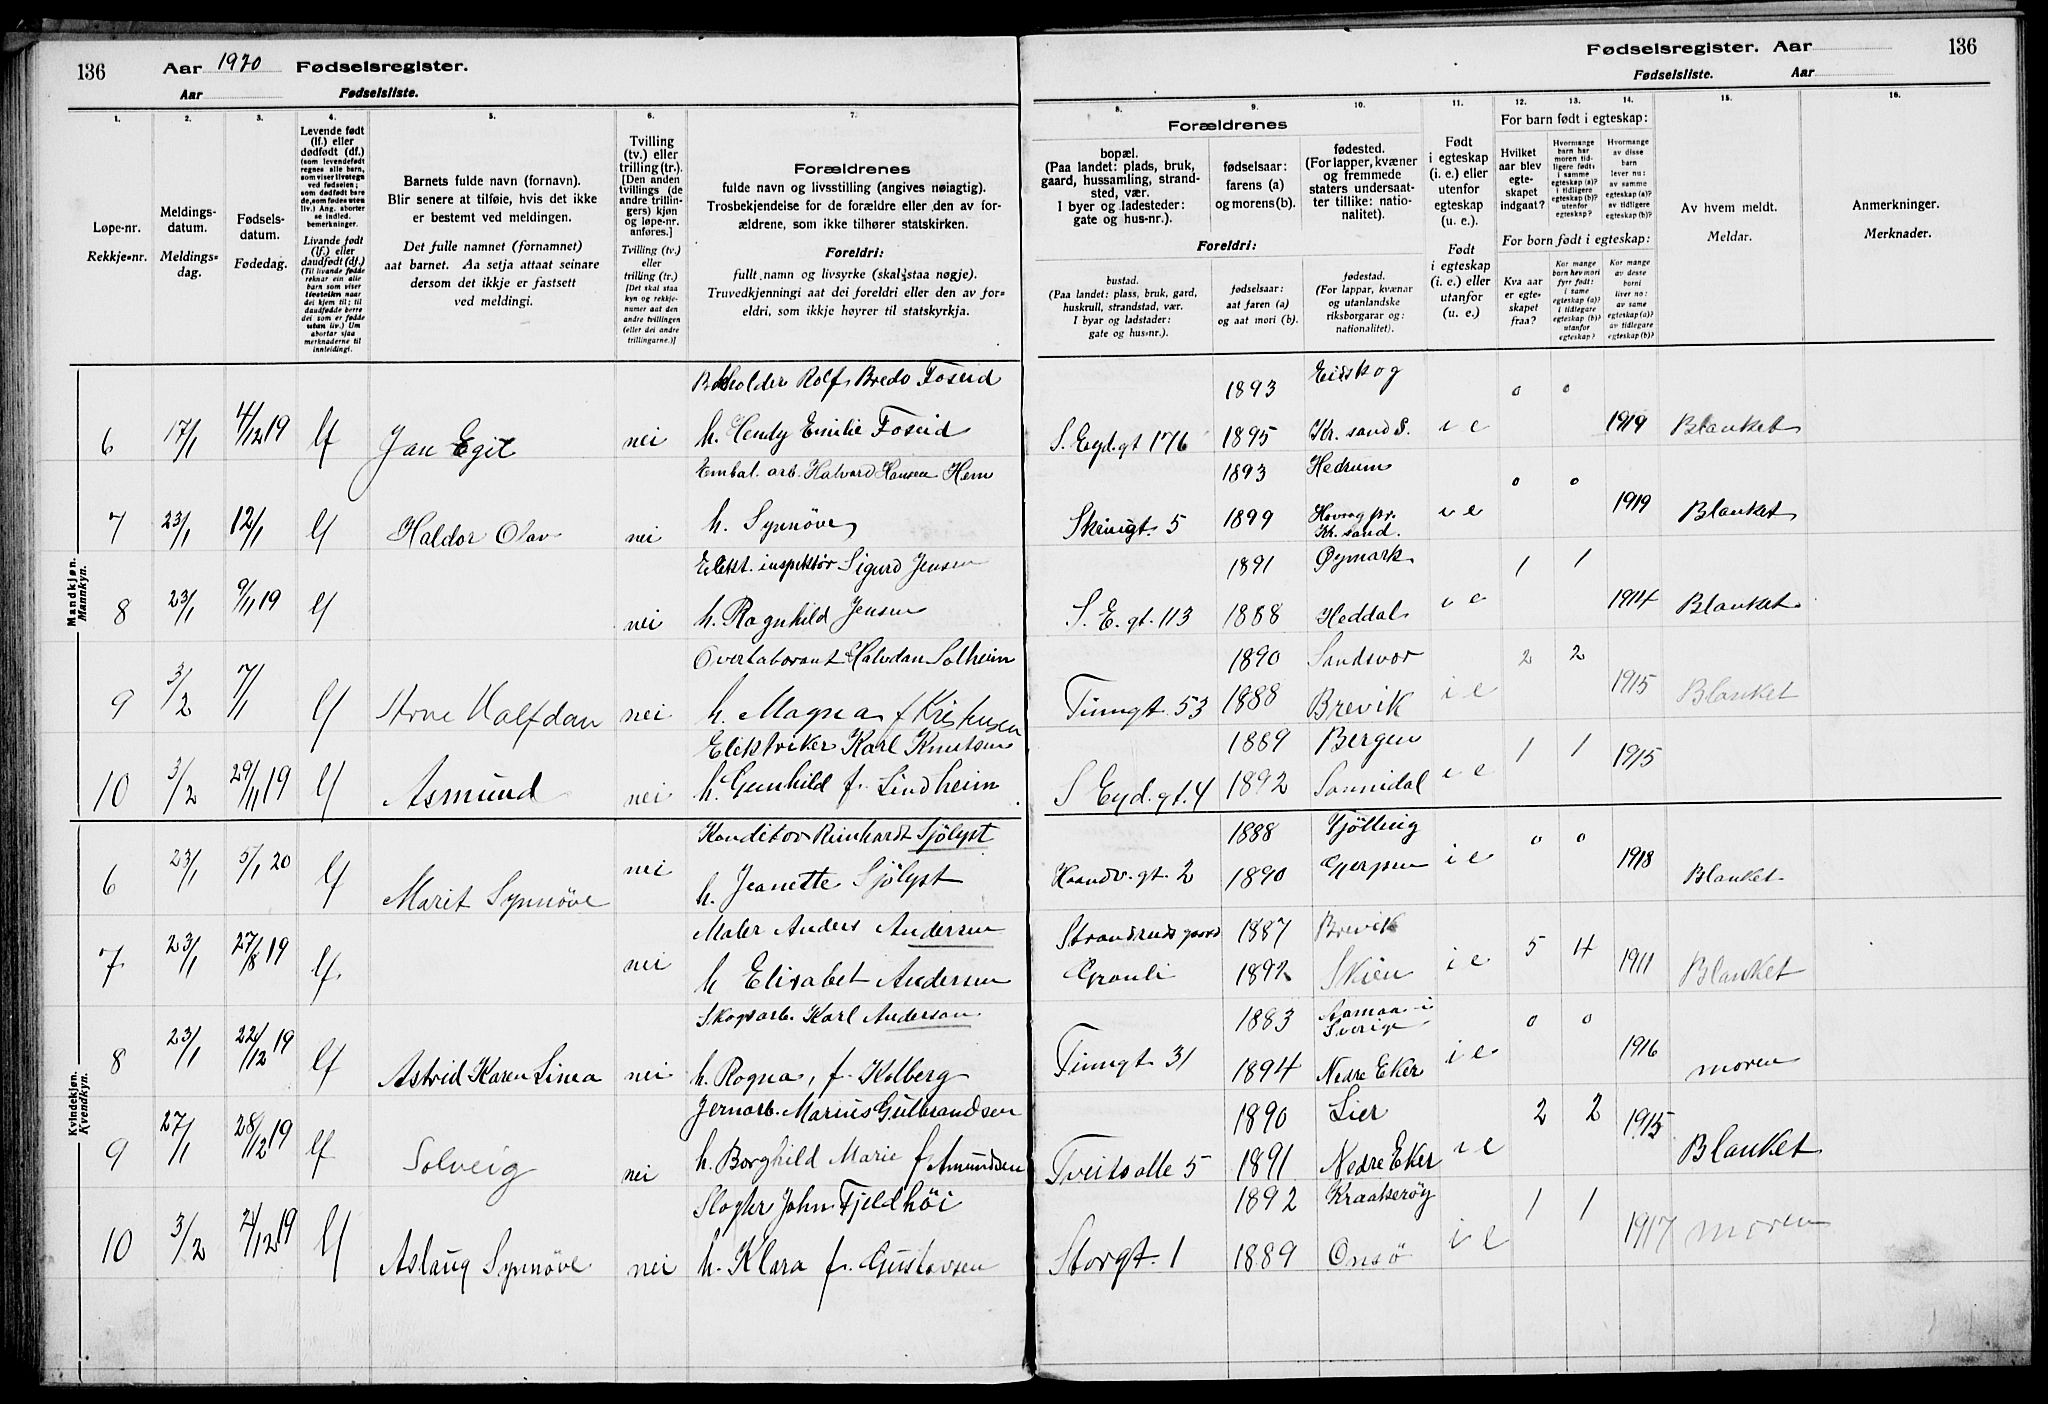 136 Aar 1920 Fødselsregister.
Aar Fødselsliste.
Fødselsregister. Aar 136
Fødselsliste. Aar
1. 2. 3. 4. 5. 6. 7.
Løpe-nr.
Rekkje-nr.
Meldings-
datum.
Meldings-
dag.
Fødsels-
datum.
Fødedag.
Levende født
(lf.) eller
dødfødt (df.)
(som levendefødt
regnes alle barn,
som viser livstegn
ved fødselen;
som dødfødt bare
de, som fødes uten
liv.) Ang. aborter
se indled.
bemerkninger.
Livande født
(lf.) eller
daudfødt (df.)
(Til livande fødde
reknar ein alle
barn som viser
livsteikn naar
dei kjem til; til
daudfødde berre
dei som er fødde
utan liv.) Um
abortar sjaa
merknaderne til
innleidingi.
Barnets fulde navn (fornavn).
Blir senere at tilføie, hvis det ikke
er bestemt ved meldingen.
Det fulle namnet (fornamnet)
aat barnet. Aa setja attaat seinare
dersom det ikkje er fastsett
ved meldingi.
Tvilling
(tv.) eller
trilling (tr.).
[Den anden
tvillings (de
andre trillin-
gers) kjøn
og løpe-nr.
anføres.]
Tvilling (tv.)
eller
trilling (tr.)
[Det skal staa
kyn og rekkje-
numer aat den
andre tvillingen
(eller dei andre
trillingarne.)]
Forældrenes
fulde navn og livsstilling (angives nøiagtig).
Trosbekjendelse for de forældre eller den av for-
ældrene, som ikke tilhører statskirken.
Foreldri:
fullt namn og livsyrke (skal staa nøgje).
Truvedkjenningi aat dei foreldri eller den av for-
eldri, som ikkje høyrer til statskyrkja.
8. 9. 10. 11. 12. 13. 14. 15. 16.
Forældrenes
bopæl.
(Paa landet: plads, bruk,
gaard, hussamling, strand-
sted, vær.
I byer og ladesteder:
gate og hus-nr.).
fødselsaar:
farens (a)
og morens (b).
fødested.
(For lapper, kvæner
og fremmede
staters undersaat-
ter tillike: natio-
nalitet).
Foreldri:
bustad.
(Paa landet: plass, bruk, gard,
huskrull, strandstad, vær.
I byar og ladstader:
gate og hus-nr.).
fødselsaar:
aat faren (a)
og aat mori (b).
fødestad.
(For lappar, kvænar
og utanlandske
riksborgarar og:
nationalitet).
Født
i egteskap
(i. e.) eller
utenfor
egteskap
(u. e.).
Født
i egteskap
(i. e.) eller
utanfor
(u. e.)
For barn født i egteskap:
Hvilket
aar blev
egte-
skapet
indgaat?
Hvormange
barn har
moren tid-
ligere født:
i samme
egteskap (a)?
i tidligere
egteskap (b)?
utenfor
egteskap?
Hvormange
av disse
barn
lever nu:
av samme
egteskap (a)?
av tidligere
egteskap (b)?
For born født i egteskap:
Kva aar
er egte-
skapet
fraa?
Kor mange
born hev mori
fyrr født:
i same
egteskap (a)?
i tidlegare
egteskap (b)?
utanfor
egteskap?
Kor mange
av desse
borni
liver no:
av same
egteskap (a)?
av tidlegare
egteskap (b)?
Av hvem meldt.
Meldar.
Anmerkninger.
Merknader.
Mandkjøn.
Mannkyn.
Rolf Bredo Foseid 1893 Eidskog 0 0
6 17/1 4/12 19 lf Jan Egil nei h. Hendy Emilie Foseid S. Eyd.gt 176 1895 Kr. sand S. i e 1919 Blanket
Embal. arb. Halvard Hansen Hem 1893 Hedrum 0 0
7 23/1 12/1 lf Haldor Olav nei h. Synnøve Skrivgt. 5 1899 Kr. sand. i e 1919 Blanket
Elekt. inspektør Sigurd Jensen 1891 Øymark 1 1
8 23/1 9/11 19 lf nei h. Ragnhild Jensen S. E. gt. 113 1888 Heddal i e 1914 Blanket
Overlaborant Halvdan Solheim 1890 Sandsvær 2 2
9 3/2 7/1 lf Arne Halfdan nei h. Magna f Kristensen Tinngt. 53 1888 Brevik i e 1915 Blanket
Elektriker Karl Knutsen 1889 Bergen 1 1
10 3/2 29/11 19 lf Asmund nei h. Gunhild f. Lindheim S Eyd. gt. 4 1892 Sannidal i e 1915
Kvindekjøn.
Kvendkyn.
Konditor Reinhardt Sjölyst 1888 Tjölling 0 0
6 23/1 5/1 20 lf Marit Synnøve nei h. Jeanette Sjölyst Haandv. gt. 2 1890 Gjerpen i e 1918 Blanket
Maler Anders Andersen Strandrudsgaard 1887 Brevik 5 4
7 23/1 27/8 19 lf nei h Elisabet Andersen Grauli 1892 Skien i e 1911 Blanket
Skogsarb. Karl Anderson 1883 i Sverige 0 0
8 23/1 22/12 19 lf Astrid Karen Linea nei h. Ragna, f. Kolberg Tinngt 31 1894 Nedre Eker i e 1916 moren
Jernarb. Marius Gulbrandsen 1890 Lier 2 2
9 27/1 28/12 19 lf Solveig nei h. Borghild Marie f Amundsen Tveitoalle 5 1891 Nedre Eker i e 1915 Blanket
John Fjeldhöi 1892 Kraakerøy 1 1
10 3/2 21/12 19 lf Aslaug Synnøve nei h. Klara f. Gustavsen Storgt. 1 1889 Onsö i e 1917 moren